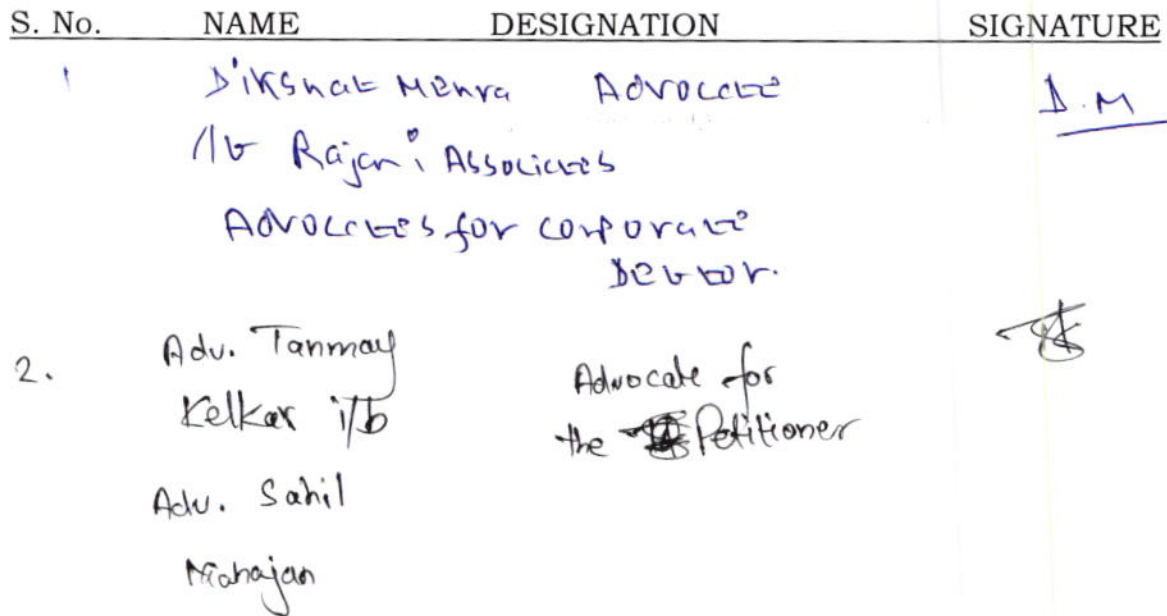 S. No. NAME DESIGNATION SIGNATURE
1 Dikshat Mehra Advocate D.M
i/b Rajani Associates
Advocates for Corporate
Debtor.
2. Adv. Tanmay
Kelkar i/b
Adv. Sahil
Mahajan
Advocate for
the Petitioner